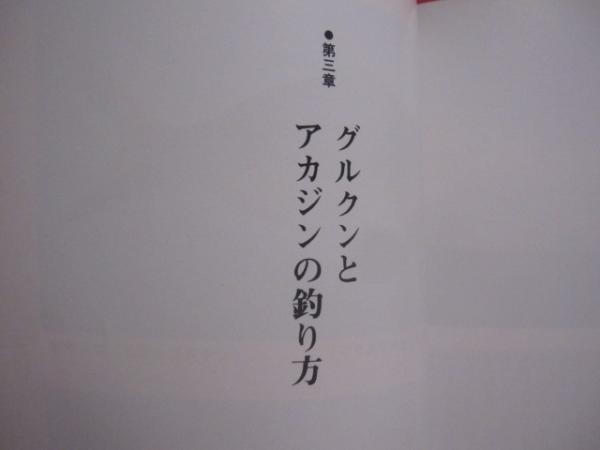 ●第三章
グルクンと
アカジンの釣り方